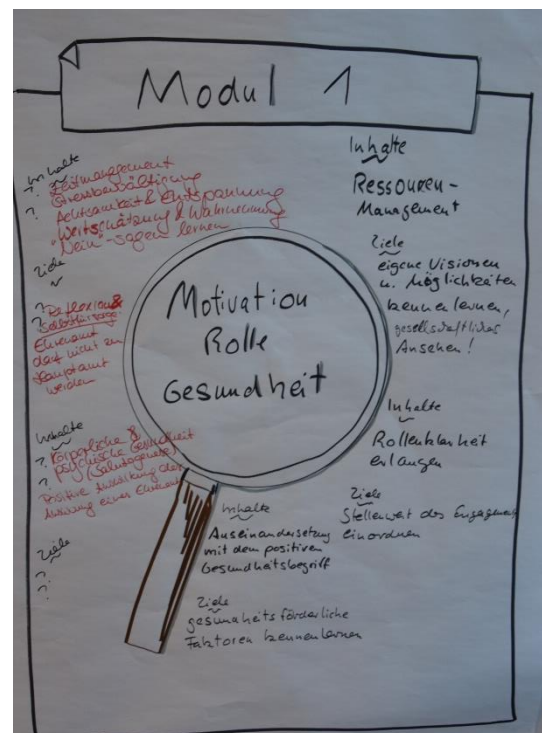 Modul 1
Inhalte
?
?
Zeitmanagement
Stressbewältigung
Achtsamkeit & Entspannung
"Wertschätzung & Wahrnehmung
"Nein"-sagen lernen
Ziele
?
?
Reflexion &
Selbstfürsorge
Ehrenamt
darf nicht zu
Hauptamt
werden
Inhalte
?
?
Körperliche &
psychische Gesundheit
(Salutogenese)
Positive Auswirkung der
eines Ehrenamt
Ziele
?
?
Motivation
Rolle
Gesundheit
Inhalte
Ressourcen-
Management
Ziele
eigene Visionen
u. Möglichkeiten
kennenlernen,
gesellschaftliches
Ansehen!
Inhalte
Rollenklarheit
erlangen
Ziele
Stellenwert des Engagement
einordnen
Inhalte
Auseinandersetzung
mit dem positiven
Gesundheitsbegriff
Ziele
gesundheitsförderliche
Faktoren kennenlernen